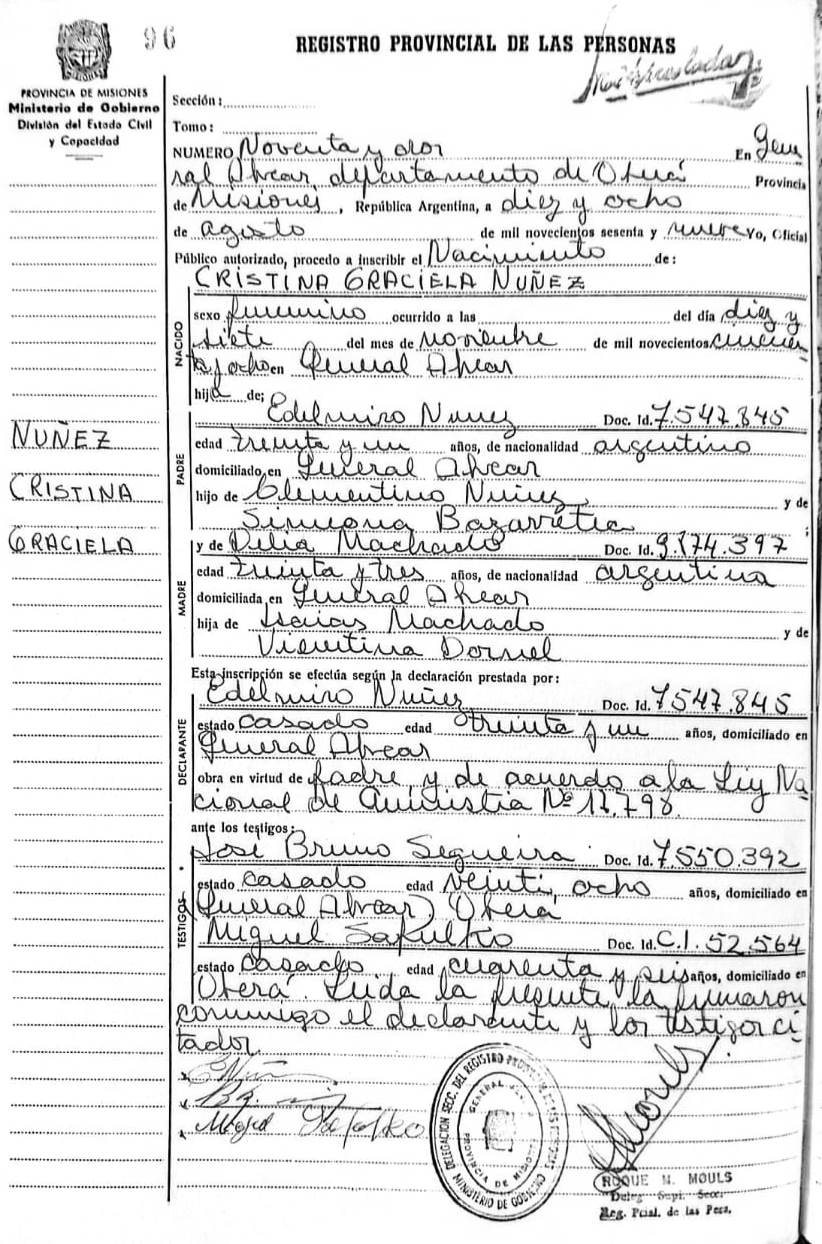 96
REGISTRO PROVINCIAL DE LAS PERSONAS
PROVINCIA DE MISIONES
Ministerio de Gobierno
División del Estado Civil
y Capacidad
Sección:
Tomo:
NUMERO Noventa y dos En Gene
ral Alvear, departamento de Oberá Provincia
de Misiones, República Argentina, a diez y ocho
de agosto de mil novecientos sesenta y nueve yo, Oficial
Público autorizado, procedo a inscribir el Nacimiento de:
CRISTINA GRACIELA NUÑEZ
NACIDO
sexo femenino ocurrido a las del día diez y
siete del mes de Noviembre de mil novecientos cincuen
ta y ocho en General Alvear
hija de;
NUÑEZ
CRISTINA
GRACIELA
PADRE
Edelmiro Nunez Doc. Id. 7.547.845
edad treinta y un años, de nacionalidad argentino
domiciliado en General Alvear
hijo de Clementino Nuñez y de
Simeona Bazarretia ;
MADRE
y de Delia Machado Doc. Id. 9.174.397
edad treinta y tres años, de nacionalidad argentina
domiciliada en General Alvear
hija de Isaias Machado y de
Visentina Dornel
Esta inscripción se efectúa según la declaración prestada por:
DECLARANTE
Edelmiro Nuñez Doc. Id. 7547.845
estado casado edad treinta y un años, domiciliado en
General Alvear
obra en virtud de padre y de acuerdo a la Ley Na
cional de Amnistia Nº 17.798.
ante los testigos:
TESTIGOS
José Bruno Segueira Doc. Id. 7.550.392
estado casado edad veinti ocho años, domiciliado en
General Alvear) Oberá
Miguel Sakulko Doc. Id. C.I. 52.564
estado casado edad cuarenta y seis años, domiciliado en
Oberá. Leida la presente la firmaron
conmigo el declarante y los testigos ci
tados
DELEGACION SECC. DEL REGISTRO PROVINCIAL DE LAS PERSONAS
MINISTERIO DE GOBIERNO
PROVINCIA DE MISIONES
ROQUE M. MOULS
Deleg. Supl. Secc.
Reg. Pcial. de las Pers.